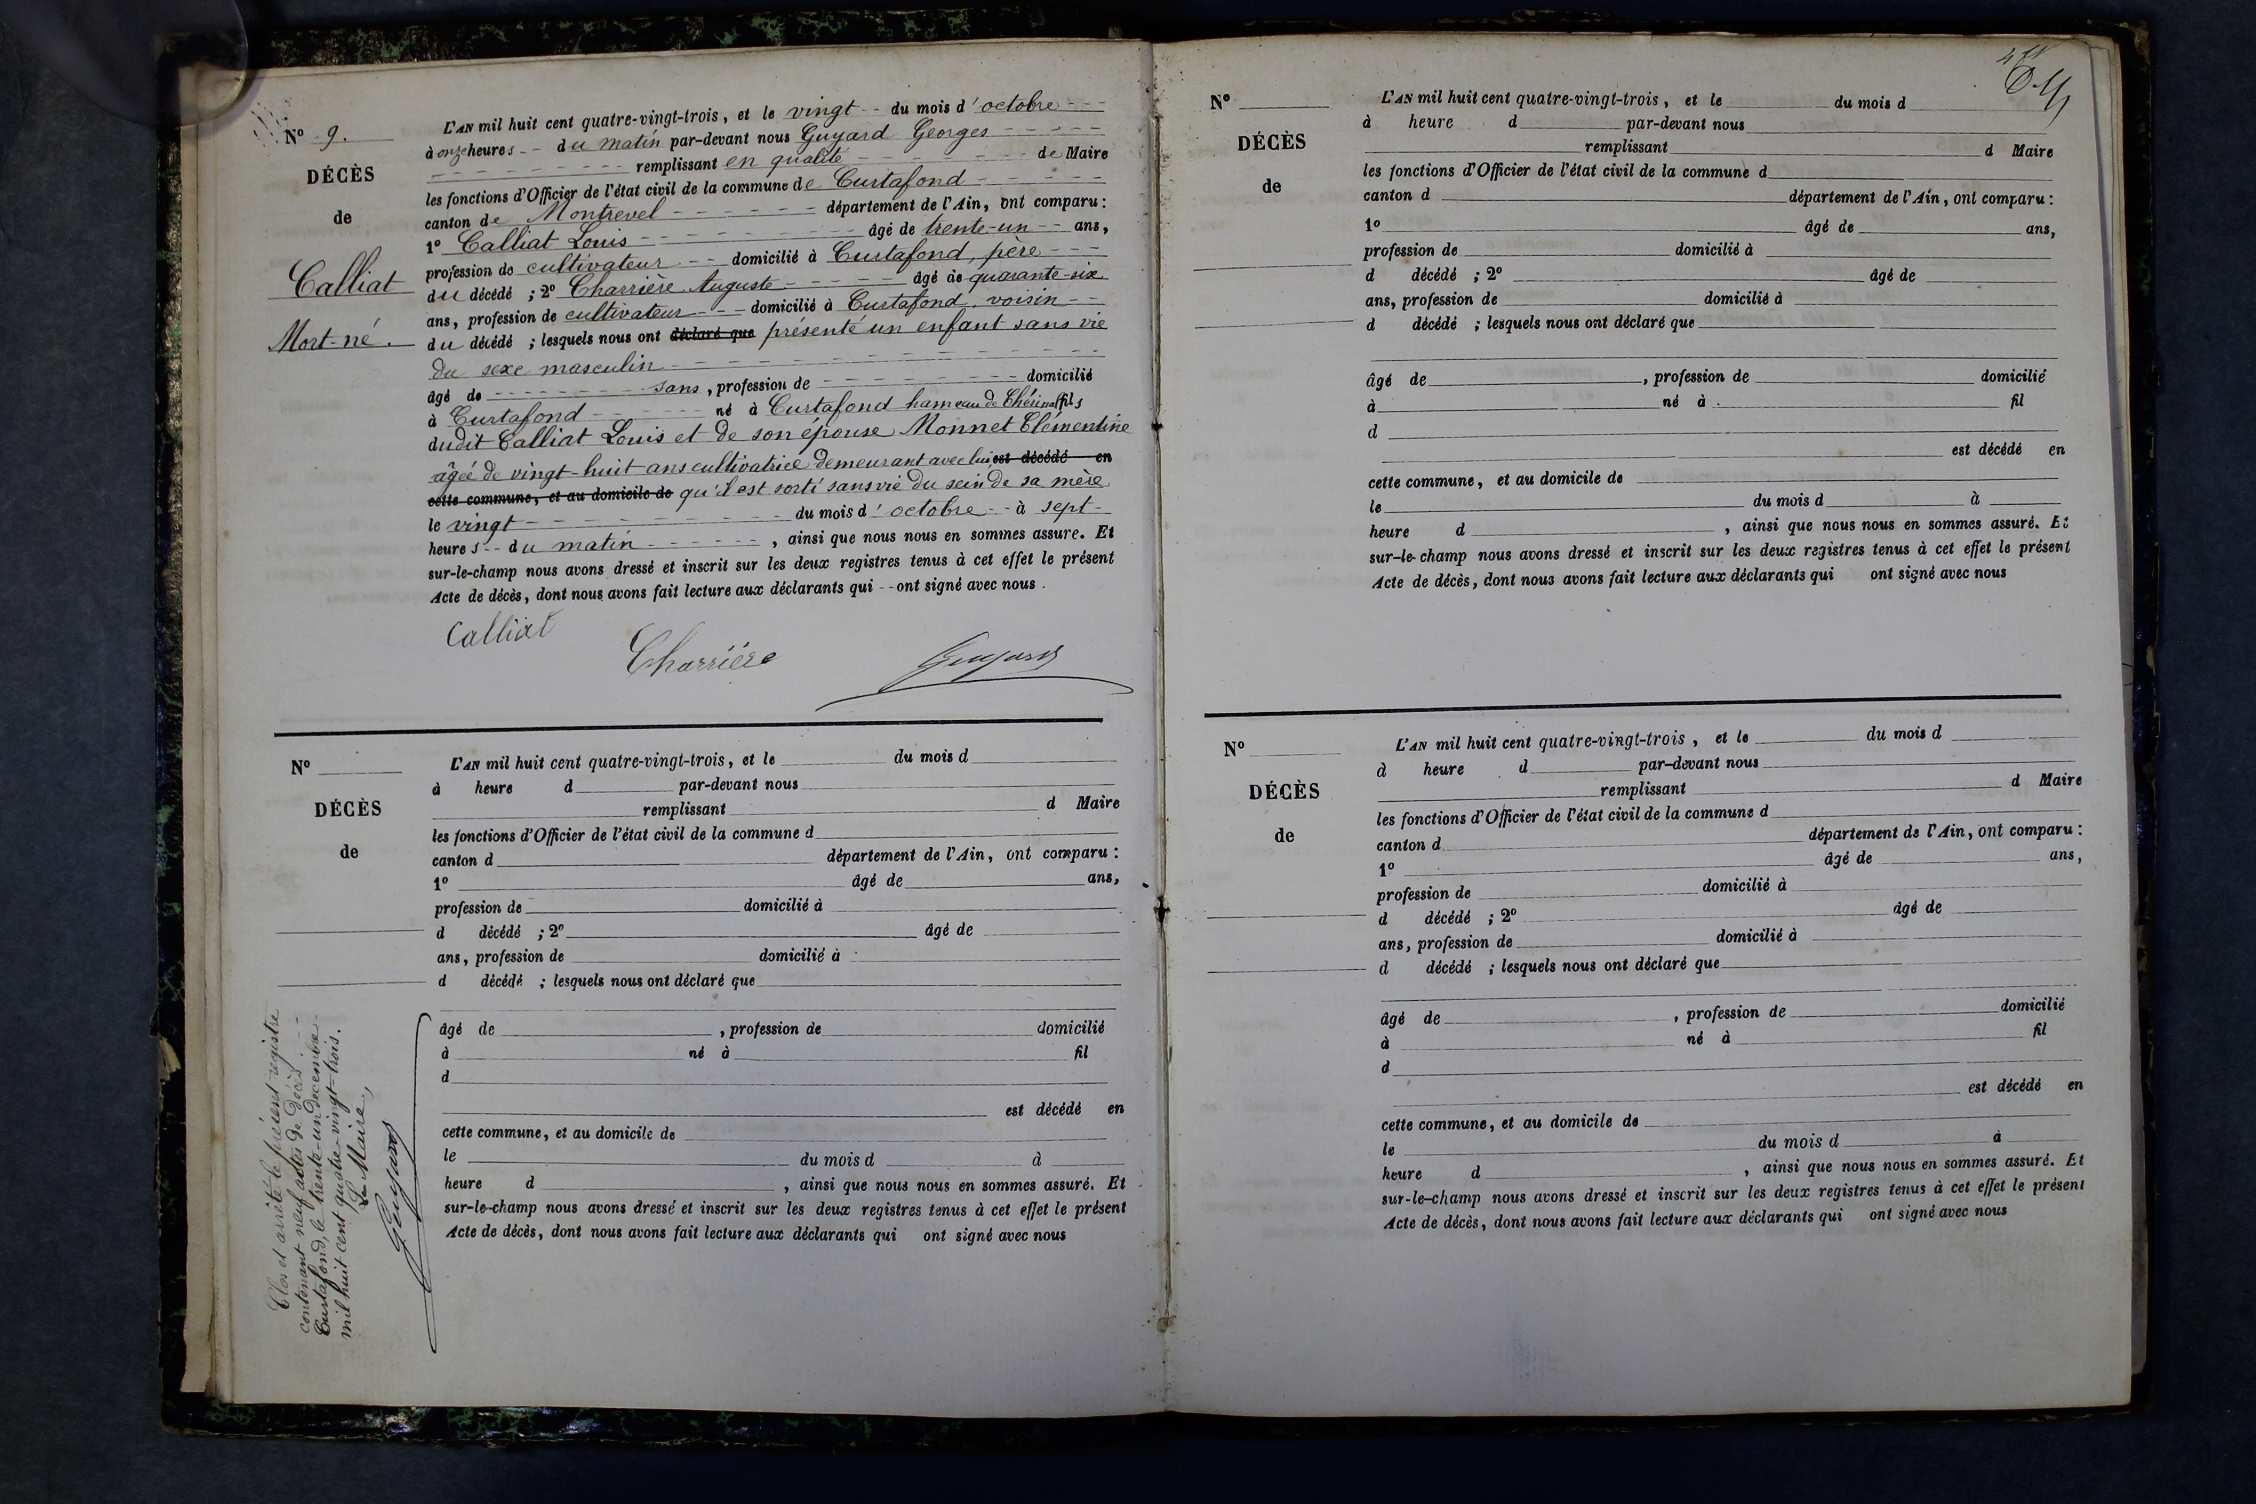 N° 9.
DÉCÈS
de
Calliat
Mort-né.
L'AN mil huit cent quatre-vingt-trois, et le vingt du mois d'octobre
à onze heures du matin par-devant nous Guyard Georges
remplissant en qualité de Maire
les fonctions d'Officier de l'état civil de la commune de Curtafond
canton de Montrevel département de l'Ain, ont comparu :
1° Calliat Louis âgé de trente-un ans,
profession de cultivateur domicilié à Curtafond, père
du décédé ; 2° Charrière Auguste âgé de quarante-six
ans, profession de cultivateur domicilié à Curtafond, voisin
du décédé ; lesquels nous ont déclaré que présenté un enfant sans vie
du sexe masculin
âgé de sans, profession de domicilié
à Curtafond né à Curtafond hameau de fils
dudit Calliat Louis et de son épouse Monnet Clémentine
âgée de vingt-huit ans cultivatrice demeurant avec lui est décédé en
cette commune, et au domicile de qu'il est sorti sans vie du sein de sa mère
le vingt du mois d'octobre à sept
heures du matin, ainsi que nous nous en sommes assuré. Et
sur-le-champ nous avons dressé et inscrit sur les deux registres tenus à cet effet le présent
Acte de décès, dont nous avons fait lecture aux déclarants qui ont signé avec nous.
Calliat
Charrière
Guyard
N°
DÉCÈS
de
L'AN mil huit cent quatre-vingt-trois, et le du mois d
à heure d par-devant nous
remplissant d Maire
les fonctions d'Officier de l'état civil de la commune d
canton d département de l'Ain, ont comparu :
1° âgé de ans,
profession de domicilié à
d décédé ; 2° âgé de
ans, profession de domicilié à
d décédé ; lesquels nous ont déclaré que
âgé de , profession de domicilié
à né à fil
d
est décédé en
cette commune, et au domicile de
le du mois d à
heure d , ainsi que nous nous en sommes assuré. Et
sur-le-champ nous avons dressé et inscrit sur les deux registres tenus à cet effet le présent
Acte de décès, dont nous avons fait lecture aux déclarants qui ont signé avec nous
Clos et arrêté le présent registre
contenant neuf actes de décès
Curtafond, le trente-un décembre
mil huit cent quatre-vingt-trois.
Le Maire,
Guyard
N°
DÉCÈS
de
L'AN mil huit cent quatre-vingt-trois, et le du mois d
à heure d par-devant nous
remplissant d Maire
les fonctions d'Officier de l'état civil de la commune d
canton d département de l'Ain, ont comparu :
1° âgé de ans,
profession de domicilié à
d décédé ; 2° âgé de
ans, profession de domicilié à
d décédé ; lesquels nous ont déclaré que
âgé de , profession de domicilié
à né à fil
d
est décédé en
cette commune, et au domicile de
le du mois d à
heure d , ainsi que nous nous en sommes assuré. Et
sur-le-champ nous avons dressé et inscrit sur les deux registres tenus à cet effet le présent
Acte de décès, dont nous avons fait lecture aux déclarants qui ont signé avec nous
N°
DÉCÈS
de
L'AN mil huit cent quatre-vingt-trois, et le du mois d
à heure d par-devant nous
remplissant d Maire
les fonctions d'Officier de l'état civil de la commune d
canton d département de l'Ain, ont comparu :
1° âgé de ans,
profession de domicilié à
d décédé ; 2° âgé de
ans, profession de domicilié à
d décédé ; lesquels nous ont déclaré que
âgé de , profession de domicilié
à né à fil
d
est décédé en
cette commune, et au domicile de
le du mois d à
heure d , ainsi que nous nous en sommes assuré. Et
sur-le-champ nous avons dressé et inscrit sur les deux registres tenus à cet effet le présent
Acte de décès, dont nous avons fait lecture aux déclarants qui ont signé avec nous